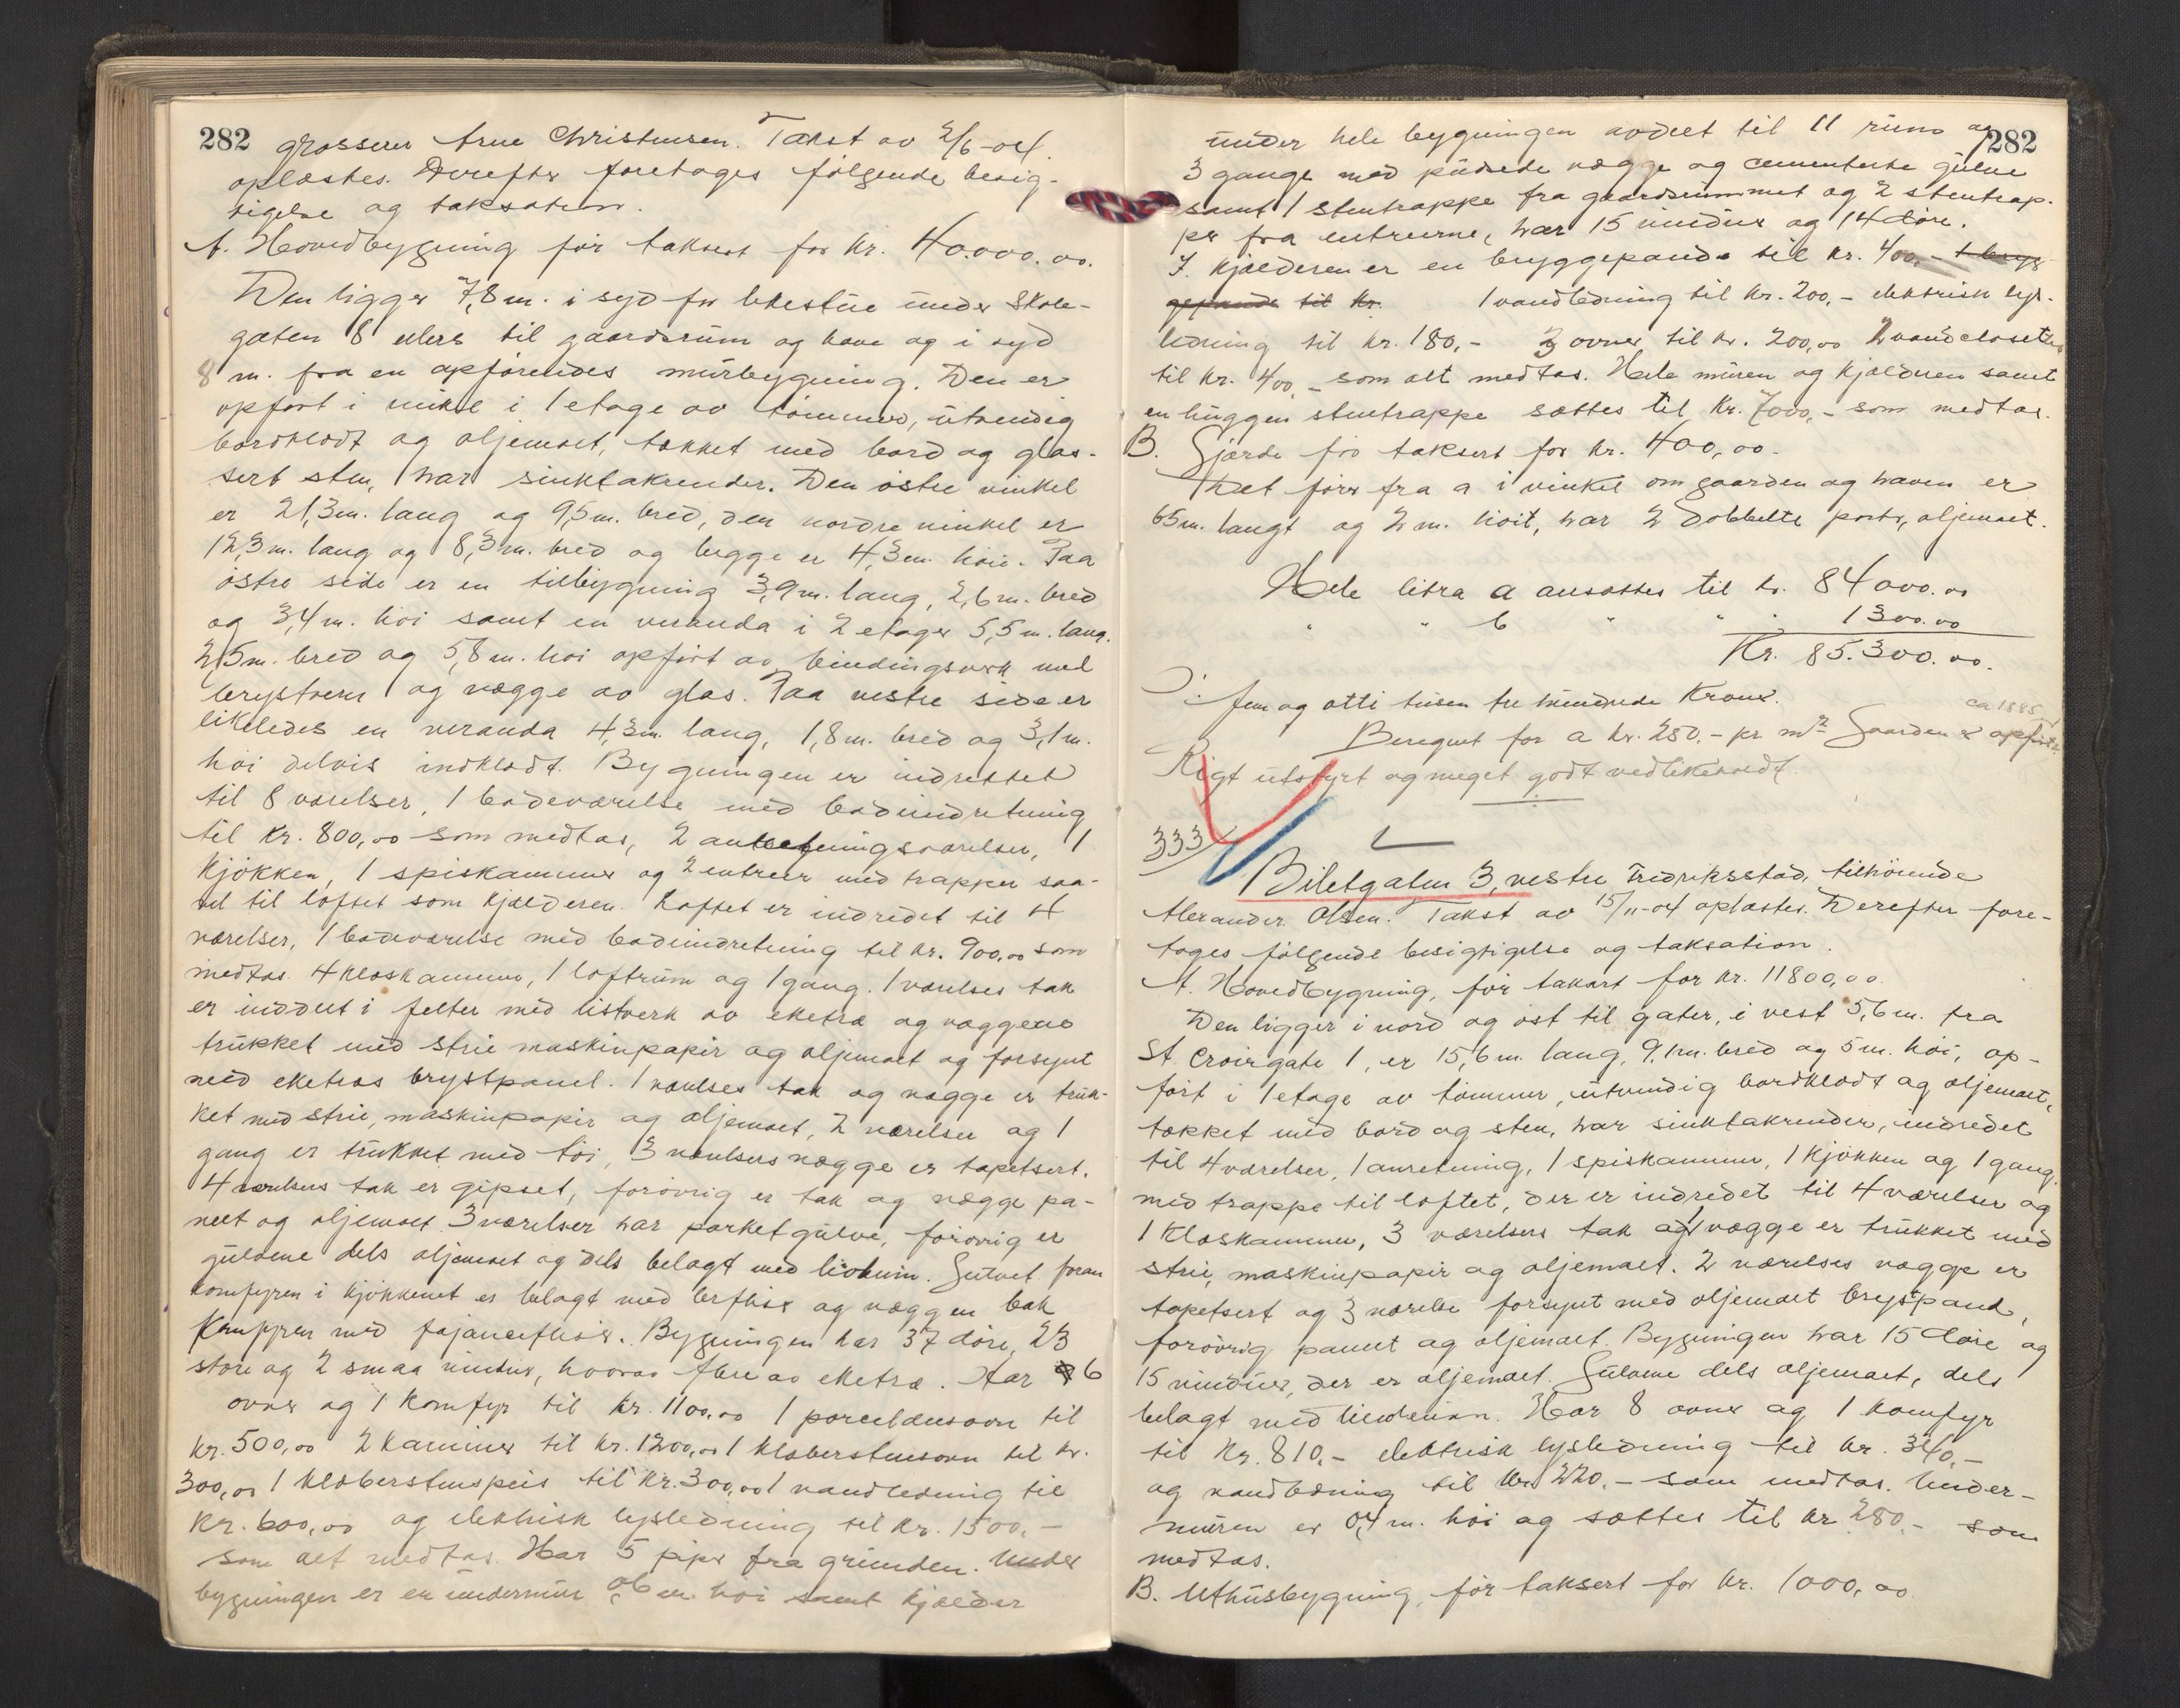 282 grosserer Arne Christensen. Takst av 2/6-04.
oplæstes. Derefter foretages følgende besig-
tigelse og taksation.
A. Hovedbygning før taksert for kr. 40.000.00.
Den ligger 7,8 m. i syd for under Skole-
gaten 8 ellers til gaardsrum og have og i syd
8 m. fra en opførendes murbygning. Den er
opført i vinkel i 1 etage av tømmer, utvendig
bordklædt og oljemalt, tækket med bord og glas-
sert sten, har sinktakrender. Den østre vinkel
er 21,3 m. lang og 9,5 m. bred, den nordre vinkel er
12,3 m. lang og 8,3 m. bred og begge er 4,3 m. høie. Paa
østre side er en tilbygning 3,9 m. lang, 2,6 m. bred
og 3,4 m. høi samt en veranda i 2 etager 5,5 m. lang.
2,5 m. bred og 5,8 m. høi opført av bindingsverk med
brystvern og vægge av glas. Paa vestre side er
likeledes en veranda 4,3 m. lang, 1,8 m. bred og 3,1 m.
høi delvis indklædt. Bygningen er indrettet
til 8 værelser, 1 badeværelse med badeindretning
til kr. 800,00 som medtas, 2 anretningsværelser, 1
kjøkken, 1 spiskammer og 2 entreer med trapper saa-
vel til loftet som kjælderen. Loftet er indredet til 4
værelser, 1 badeværelse med badeindretning til kr. 900,00 som
medtas. 4 klæskammer, 1 loftrum og 1 gang. 1 værelses tak
er inddelt i felter med listverk av eketræ og væggene
trukket med strie maskinpapir og oljemalt og forsynt
med eketræs brystpanel. 1 værelses tak og vægge er truk-
ket med strie, maskinpapir og oljemalt, 2 værelser og 1
gang er trukket med tøi, 3 værelsers vægge er tapetsert.
4 værelsers tak er gipset, forøvrig er tak og vægge pa-
nelt og oljemalt. 3 værelser har parketgulve, forøvrig er
gulvene dels oljemalt og dels belagt med linoleum. Gulvet foran
komfyren i kjøkkenet er belagt med lerfliser og væggen bak
komfyren med fajansefliser. Bygningen har 37 døre, 23
store og 2 smaa vinduer, hvorav flere av eketræ. Har 6
ovner og 1 komfyr til kr. 1100,00 1 porcelænsovn til
kr. 500,00 2 kaminer til kr. 1200,00 1 klæberstensovn til kr.
300,00 1 klæberstenspeis til kr. 300,00 1 vandledning til
kr. 600,00 og elektrisk lysledning til kr. 1500,-
som alt medtas. Har 5 piper fra grunden. Under
bygningen er en undermur 0,6 m. høi samt kjælder
282
under hele bygningen avdelt til 11 rum og
3 gange med pudsede vægge og cementerte gulve
samt 1 stentrappe fra gaardsrummet og 2 stentrap-
per fra entreerne, har 15 vinduer og 14 døre.
I kjælderen er en bryggepande til kr. 400,- 1 bryg
gepande til kr. 1 vandledning til kr. 200,- elektrisk lys-
ledning til kr. 180,- 3 ovner til kr. 200,00 2 vandclosetter
til kr. 400,- som alt medtas. Hele muren og kjælderen samt
en huggen stentrappe sættes til kr. 7000,- som medtas.
B. Gjærde før taksert for kr. 400,00.
Det fører fra a i vinkel om gaarden og haven er
65 m. langt og 2 m. høit, har 2 dobbelte porte, oljemalt.
Hele litra a ansættes til kr. 84000.00
" " b " " 1300.00
Kr. 85.300.00.
⊃: fem og otti tusen tre hundrede Kroner.
Beregnet for a kr. 280,- pr m² Gaarden er opført ca 1885
Rigt utstyrt og meget godt vedlikeholdt.
333
Biletgaten 3, vestre Fredriksstad, tilhørende
Alexander Olsen. Takst av 15/11-04 oplæstes. Derefter fore-
tages følgende besigtigelse og taksation.
A. Hovedbygning, før taksert for kr. 11800,00.
Den ligger i nord og øst til gater, i vest 5,6 m. fra
St. Croix gate 1, er 15,6 m. lang, 9,1 m. bred og 5 m. høi, op-
ført i 1 etage av tømmer, utvendig bordklædt og oljemalt,
tækket med bord og sten, har sinktakrender, indredet
til 4 værelser, 1 anretning, 1 spiskammer, 1 kjøkken og 1 gang
med trappe til loftet, der er indredet til 4 værelser og
1 klæskammer, 3 værelsers tak og vægge er trukket med
strie, maskinpapir og oljemalt. 2 værelses vægge er
tapetsert og 3 værelse forsynt med oljemalt brystpanel,
forøvrig panelt og oljemalt. Bygningen har 15 døre og
15 vinduer, der er oljemalt. Gulvene dels oljemalt, dels
belagt med linoleum. Har 8 ovner og 1 komfyr
til Kr. 810,- elektrisk lysledning til kr. 340,-
og vandledning til kr. 220,- som medtas. Under-
muren er 0,4 m. høi og sættes til kr 280,- som
medtas.
B. Uthusbygning, før taksert for kr. 1000,00